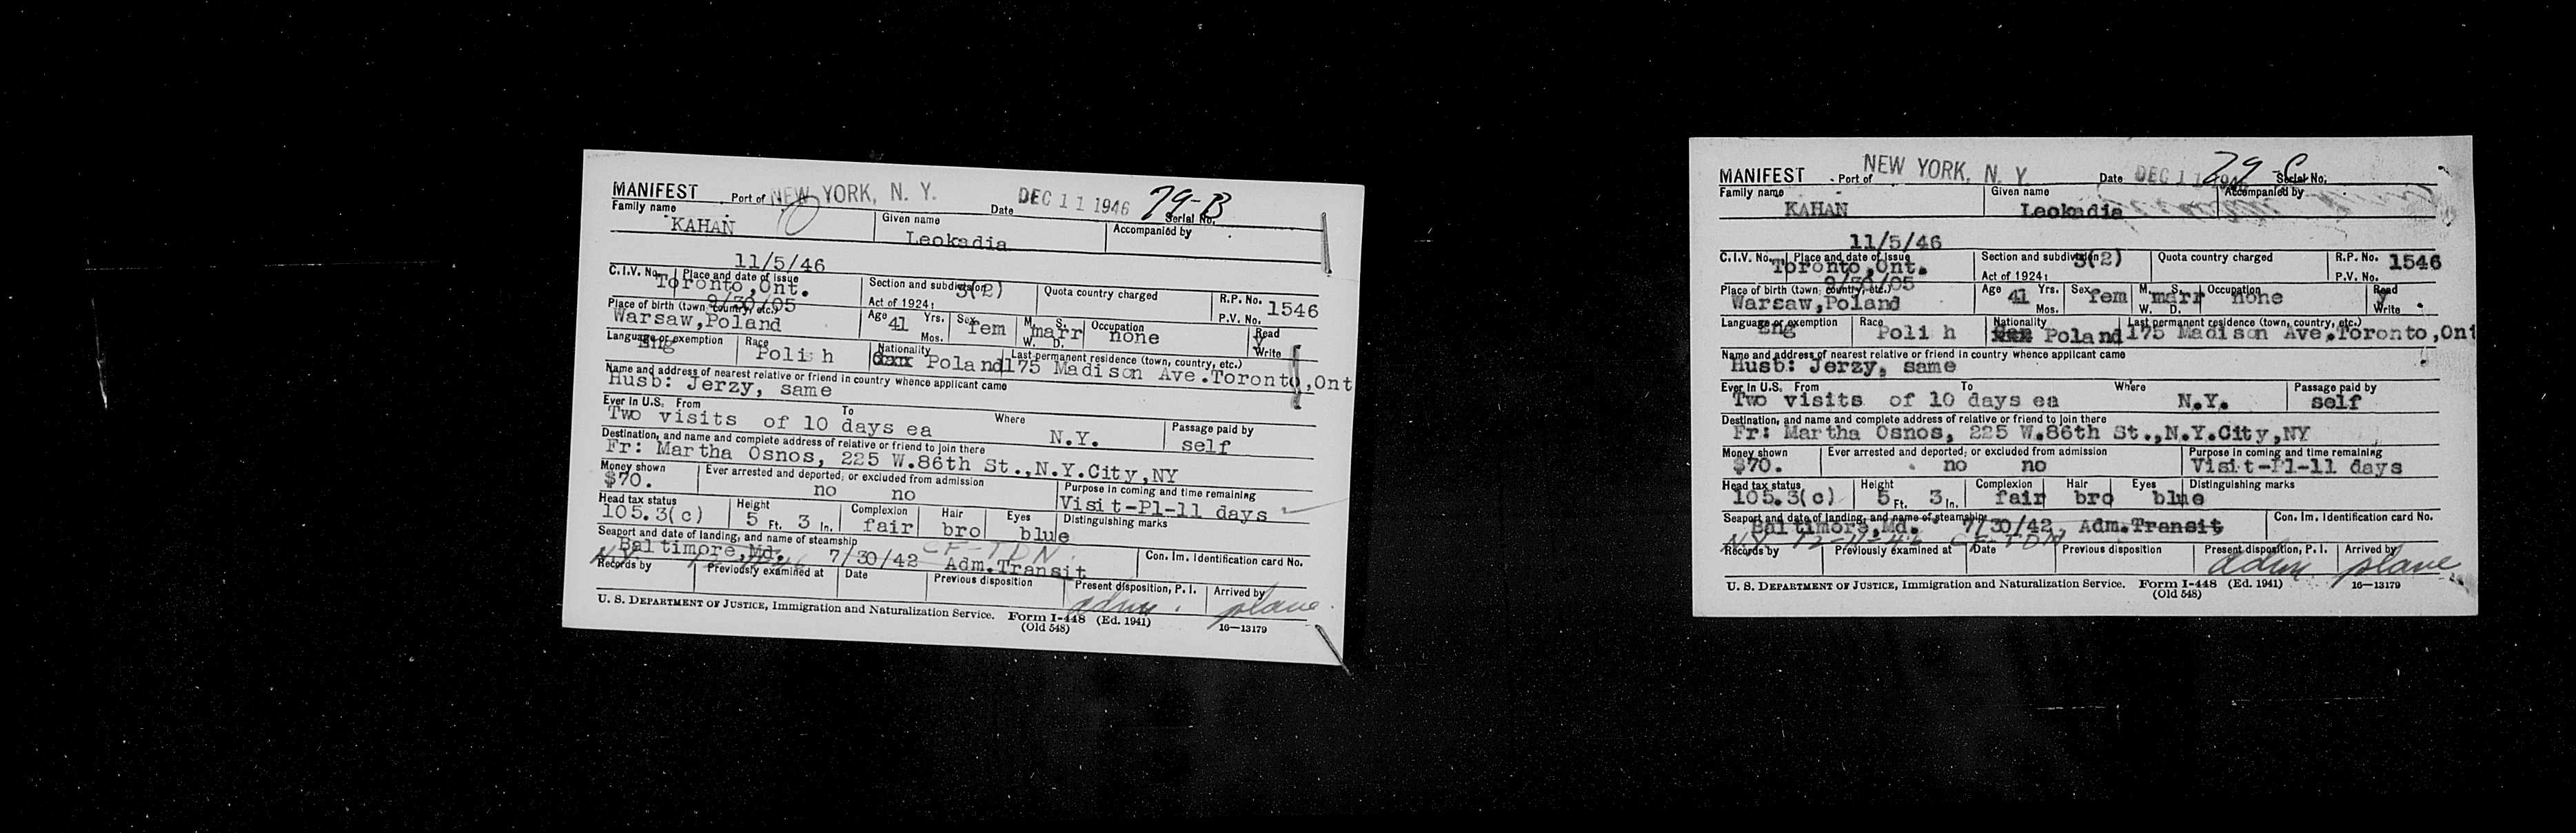 MANIFEST Port of NEW YORK, N. Y. Date DEC 11 1946 79-B Serial No.
Family name KAHAN Given name Leokadia Accompanied by
11/5/46
C.I.V. No. Place and date of issue Toronto,Ont. Section and subdivision 3(2) Act of 1924: Quota country charged R.P. No. 1546 P.V. No.
9/30/05
Place of birth (town, country, etc.) Warsaw,Poland Age 41 Yrs. Mos. Sex fem M. S. W. D. marr Occupation none Read Write y
Language or exemption Eng Race Poli h Nationality Poland Last permanent residence (town, country, etc.) 175 Madison Ave.Toronto,Ont
Name and address of nearest relative or friend in country whence applicant came
Husb: Jerzy, same
Ever in U.S. From To Where Passage paid by
Two visits of 10 days ea N.Y. self
Destination, and name and complete address of relative or friend to join there
Fr: Martha Osnos, 225 W.86th St.,N.Y.City,NY
Money shown $70. Ever arrested and deported, or excluded from admission no no Purpose in coming and time remaining Visit-Pl-11 days
Head tax status 105.3(c) Height 5 Ft. 3 In. Complexion fair Hair bro Eyes blue Distinguishing marks
Seaport and date of landing, and name of steamship Baltimore,Md. 7/30/42 Adm.Transit CF-TDN Con. Im. Identification card No.
N.Y. 12-11-46
Records by Previously examined at Date Previous disposition Present disposition, P. I. adm. Arrived by plane.
U. S. DEPARTMENT OF JUSTICE, Immigration and Naturalization Service. Form I-448 (Ed. 1941) 16—13179
(Old 548)
MANIFEST Port of NEW YORK, N. Y. Date DEC 11 1946 79-C Serial No.
Family name KAHAN Given name Leokadia Accompanied by
11/5/46
C.I.V. No. Place and date of issue Toronto,Ont. Section and subdivision 3(2) Act of 1924: Quota country charged R.P. No. 1546 P.V. No.
9/30/05
Place of birth (town, country, etc.) Warsaw,Poland Age 41 Yrs. Mos. Sex fem M. S. W. D. marr Occupation none Read Write y
Language or exemption Eng Race Poli h Nationality Poland Last permanent residence (town, country, etc.) 175 Madison Ave.Toronto,Ont
Name and address of nearest relative or friend in country whence applicant came
Husb: Jerzy, same
Ever in U.S. From To Where Passage paid by
Two visits of 10 days ea N.Y. self
Destination, and name and complete address of relative or friend to join there
Fr: Martha Osnos, 225 W.86th St.,N.Y.City,NY
Money shown $70. Ever arrested and deported, or excluded from admission no no Purpose in coming and time remaining Visit-Pl-11 days
Head tax status 105.3(c) Height 5 Ft. 3 In. Complexion fair Hair bro Eyes blue Distinguishing marks
Seaport and date of landing, and name of steamship Baltimore,Md. 7/30/42 Adm.Transit Con. Im. Identification card No.
N.Y. 12-11-46 CF-TDN
Records by Previously examined at Date Previous disposition Present disposition, P. I. adm. Arrived by plane
U. S. DEPARTMENT OF JUSTICE, Immigration and Naturalization Service. Form I-448 (Ed. 1941) 16—13179
(Old 548)